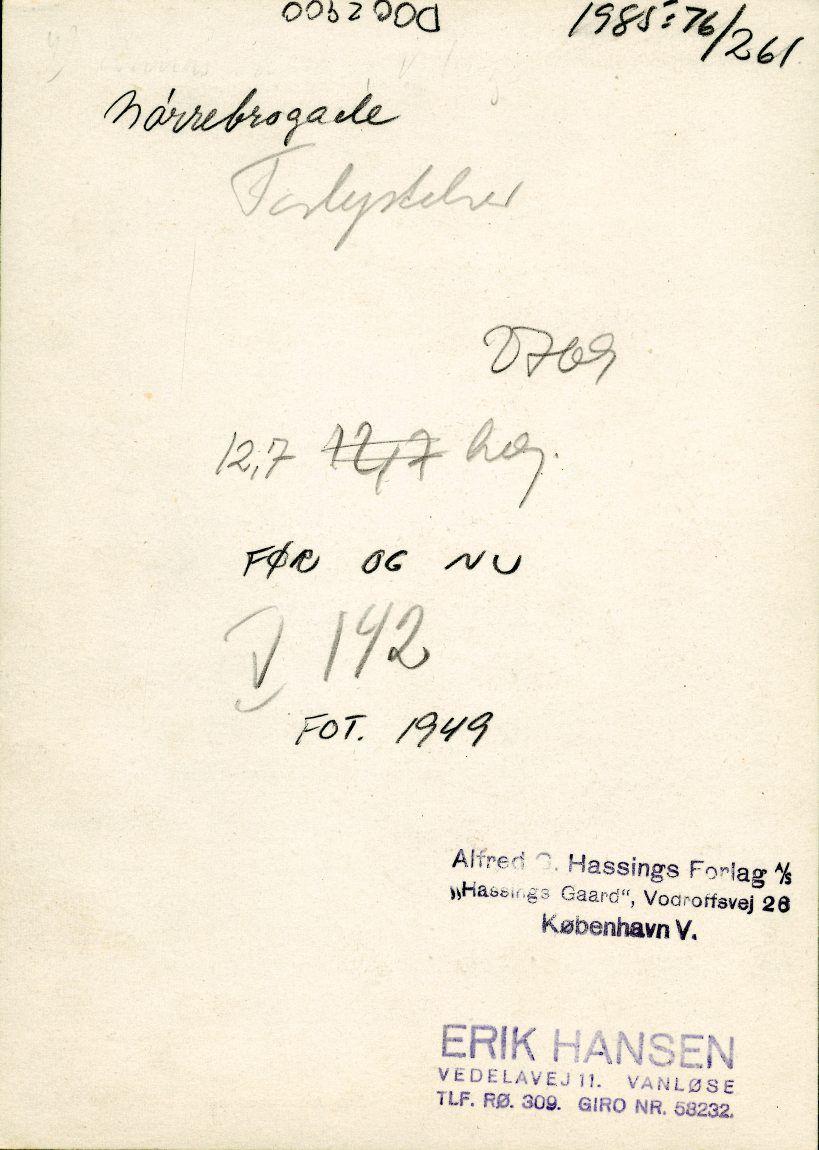 1985:76/261
Nørrebrogade
Forlystelser
12,7 12,7 høj.
FØR OG NU
V 142
FOT. 1949
Alfred G. Hassings Forlag A/S
„Hassings Gaard“, Vodroffsvej 26
København V.
ERIK HANSEN
VEDELAVEJ 11. VANLØSE
TLF. RØ. 309. GIRO NR. 58232.